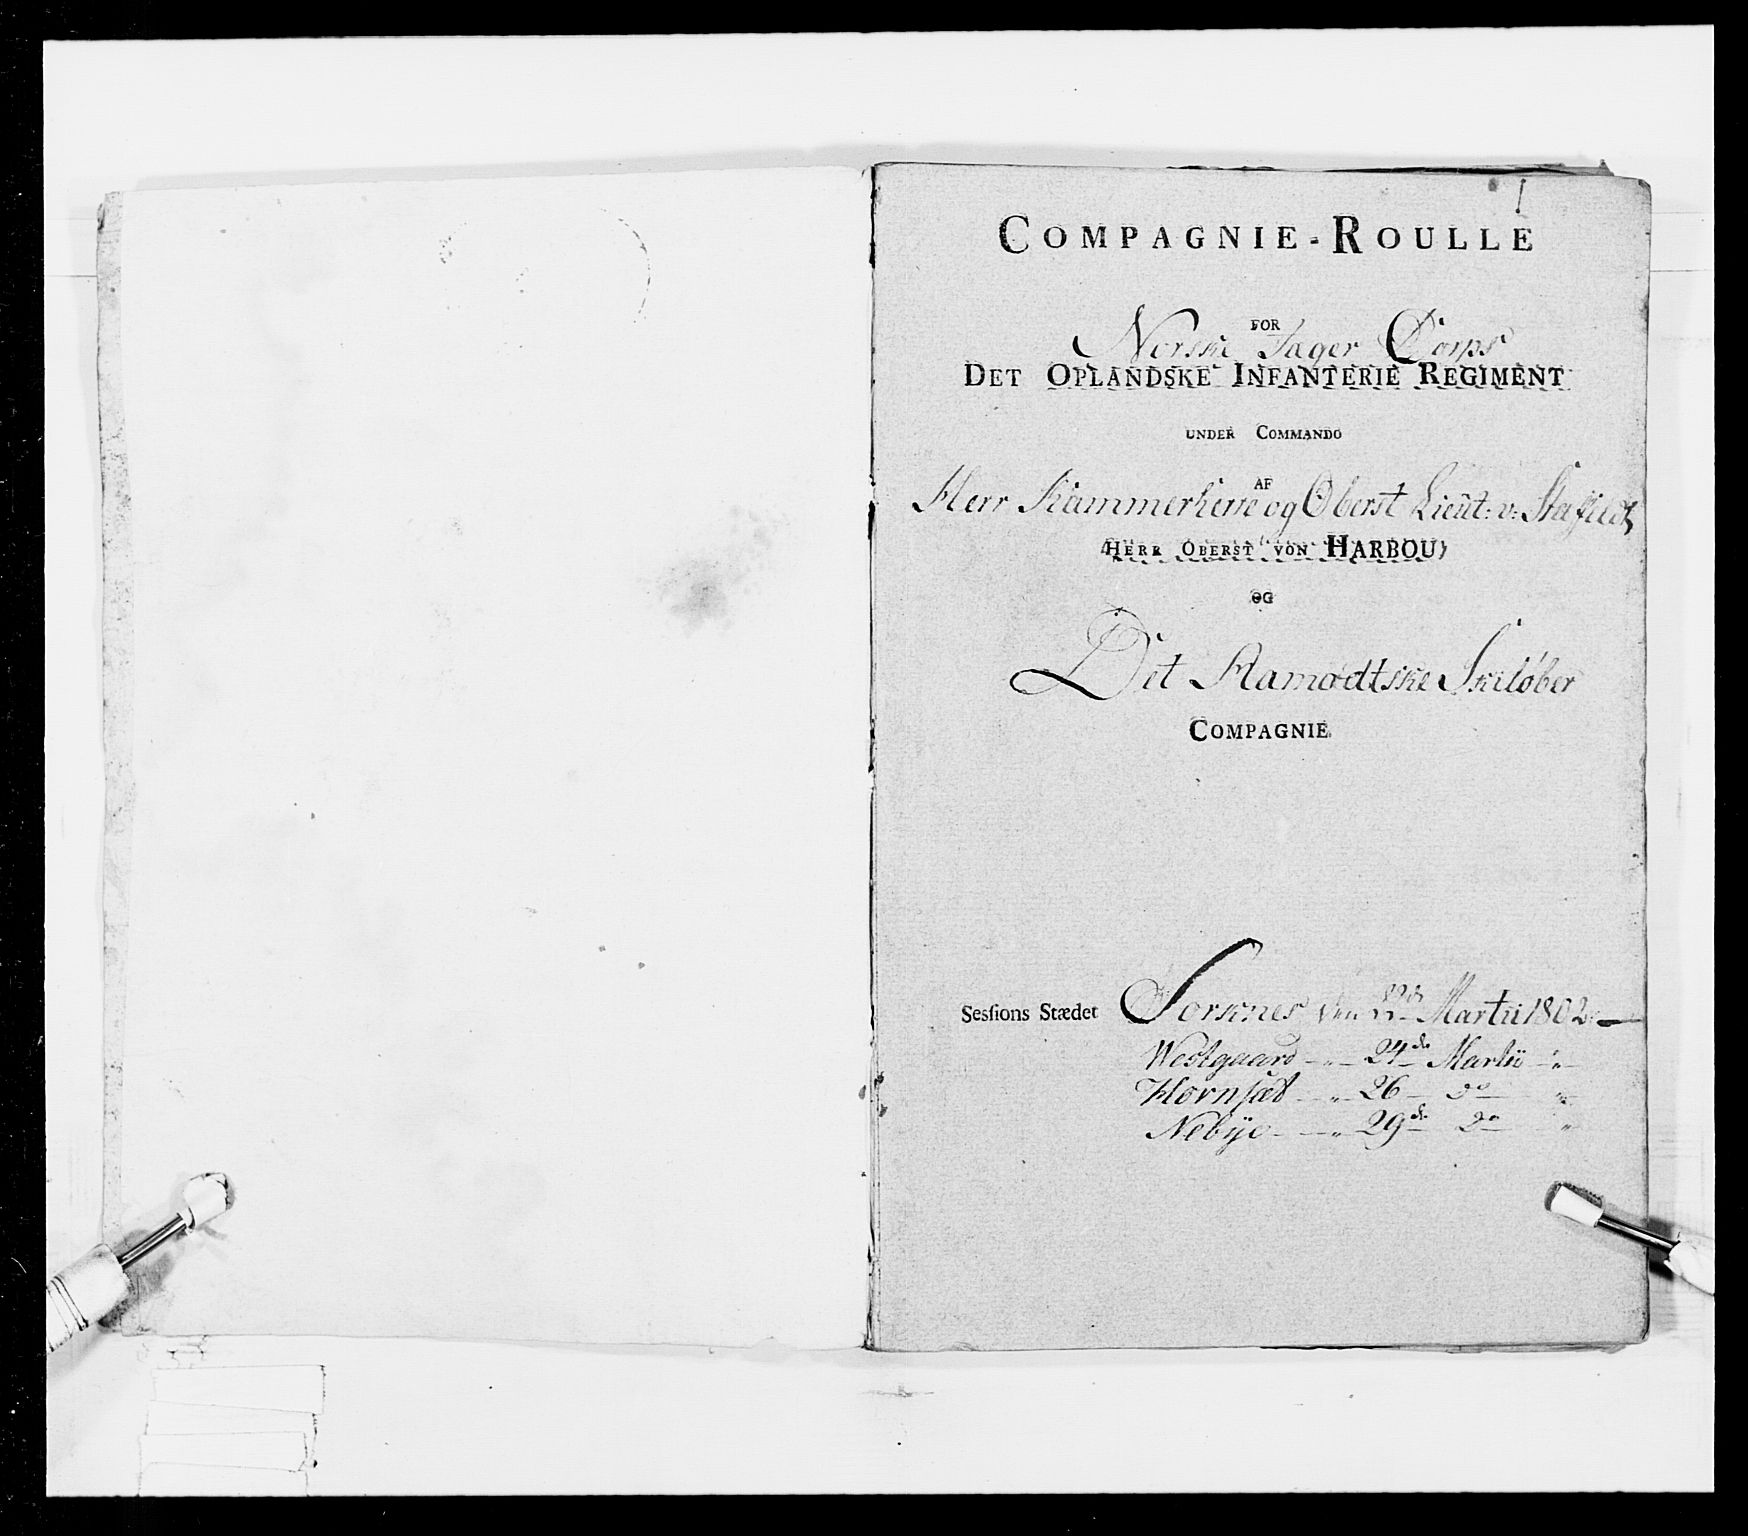 COMPAGNIE-ROULLE
FOR
Norske Jæger Corps
DET OPLANDSKE INFANTERIE REGIMENT
UNDER COMMANDO
AF
Herr Kammerherre og Oberst Lieut: v: Stafeldt
HERR OBERST VON HARBOU
OG
Det Aamodtske Skiløber
COMPAGNIE
Sesſions Stædet Sorknes den Martii 1802
Westgaard - " - 24de Martii - " -
Hornſæt - " - 26 - do - " -
Nebÿe - " - 29de do "